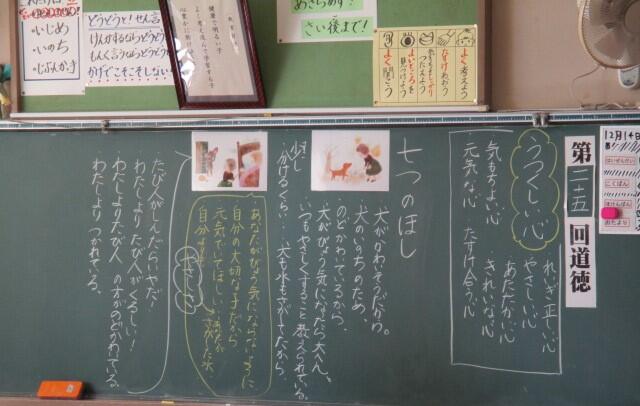 いじめ
いのち
じぶんかって
どうどうと!せん言
けんかするならどうどうと
もんく言うならどうどうと
かげでこそこそしない
健康で明るい子
よく考え進んで学習する子
心豊かに
あきらめず!
さい後まで!
よく考えよう
たすけあおう
つたえよう
よいところを
見つけよう
よく聞こう
12月14日
こくばん
おたより
第二十五回道徳
うつくしい心
れいぎ正しい心
やさしい心
あたたかい心
きれいな心
たすけ合う心
気もちよい心
元気な心
七つのほし
犬がかわいそうだから。
犬のいのちのため。
のどがかわいているから。
犬がびょう気になったら大へん。
いつもやさしくすること教えられている。
少し分けるくらい…
犬も水もさがしてたから。
あなたがびょう気にならないように
自分の大切な子だから
元気でいてほしい。
あなたがさがした水
自分より
やさしさ
たび人がしんだらいやだ!
わたしよりたび人がくるしい!
わたしよりたび人の方がのどがかわいてる。
わたしよりつかれている。